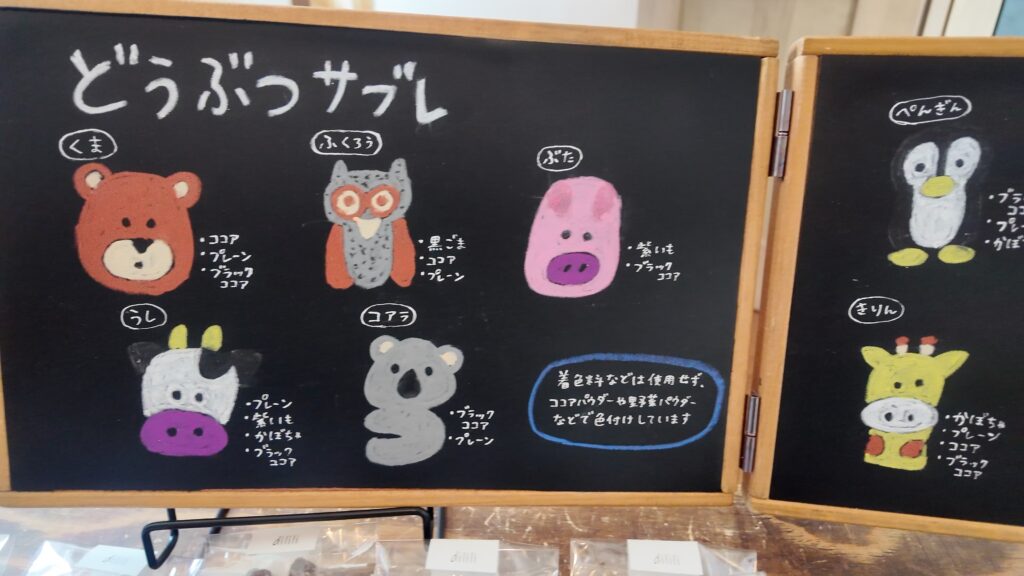 どうぶつサブレ
くま
・ココア
・プレーン
・ブラック
ココア
ふくろう
・黒ごま
・ココア
・プレーン
ぶた
・紫いも
・ブラック
ココア
うし
・プレーン
・紫いも
・かぼちゃ
・ブラック
ココア
コアラ
・ブラック
ココア
・プレーン
着色料などは使用せず、
ココアパウダーや野菜パウダー
などで色付けしています
ぺんぎん
・ブラ
ココ
・プレー
・かぼ
きりん
・かぼちゃ
・プレーン
・ココア
・ブラック
ココア